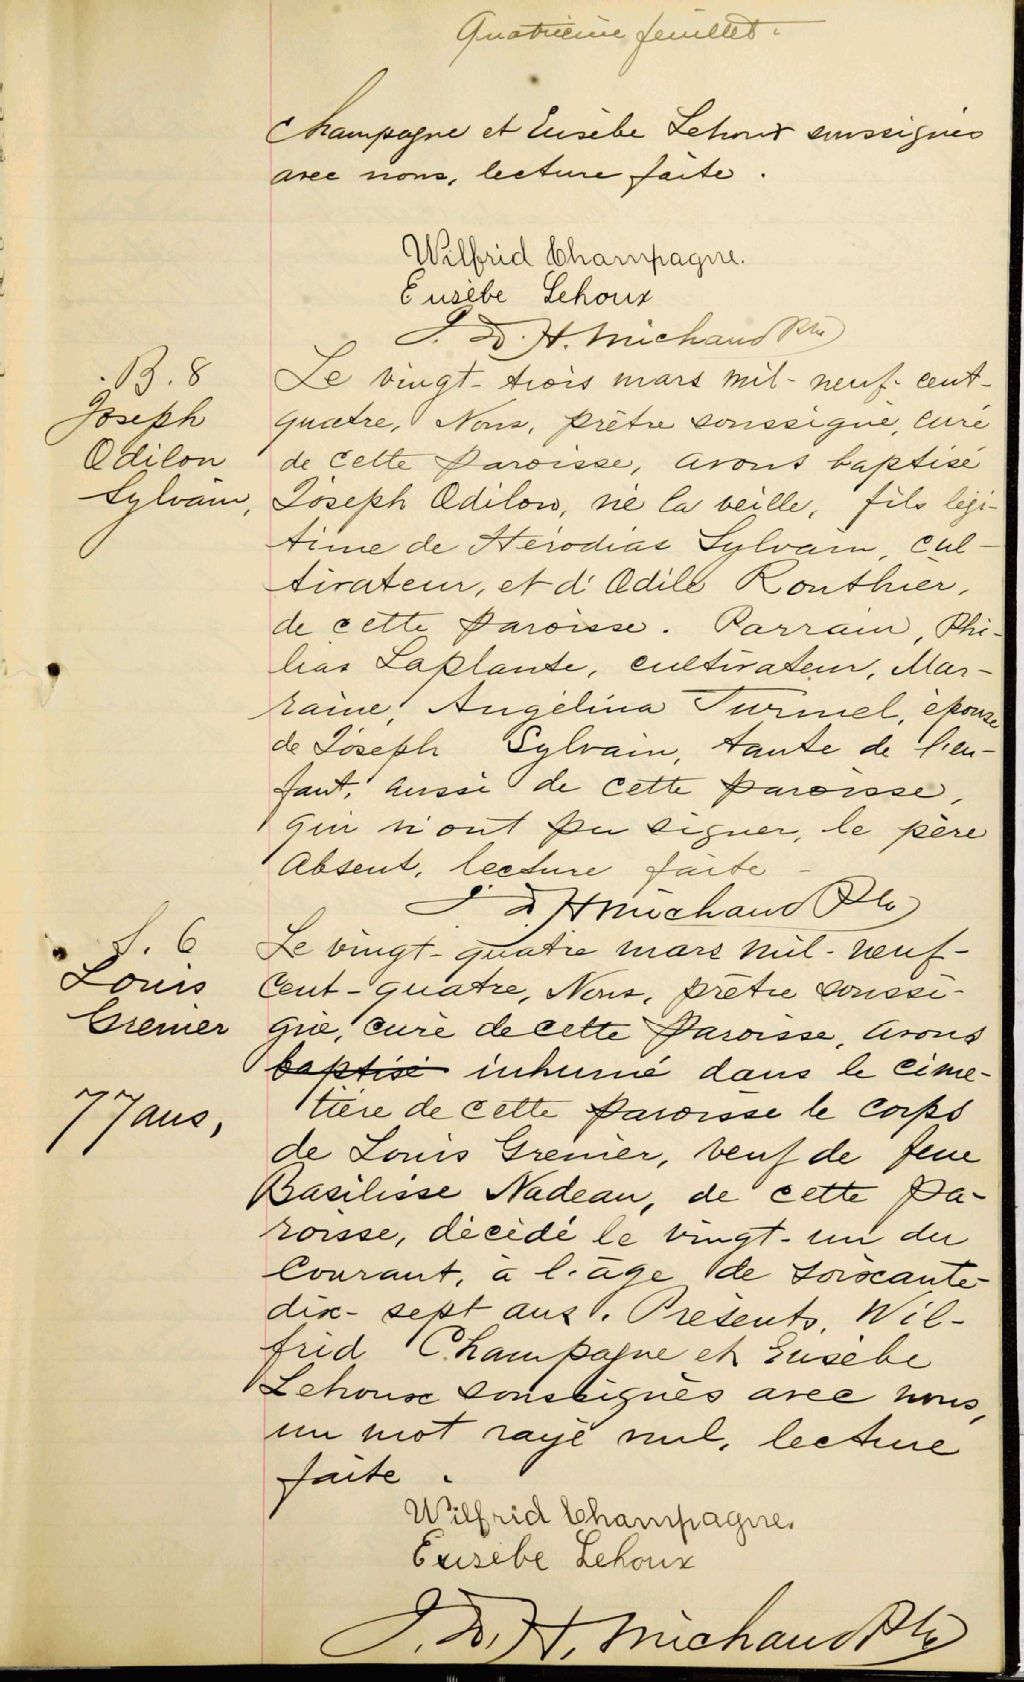 Quatrième feuillet.
Champagne et Eusèbe Lehoux soussignés
avec nous, lecture faite.
Wilfrid Champagne.
Eusèbe Lehoux
J. D. H. Michaud Ptre
B. 8
Joseph
Odilon
Sylvain,
Le vingt-trois mars mil-neuf-cent-
quatre, Nous, prêtre soussigné, curé
de cette paroisse, avons baptisé
Joseph Odilon, né la veille, fils légi-
time de Hérodias Sylvain, cul-
tivateur, et d'Odile Routhier,
de cette paroisse. Parrain, Phi-
lias Laplante, cultivateur, Mar-
raine, Angélina Turmel, épouse
de Joseph Sylvain, tante de l'en-
fant, aussi de cette paroisse,
qui n'ont pu signer, le père
absent, lecture faite -
J. D. H Michaud Ptre
S. 6
Louis
Grenier
77 ans,
Le vingt-quatre mars mil-neuf-
cent-quatre, Nous, prêtre soussi-
gné, curé de cette paroisse, avons
baptisé inhumé dans le cime-
tière de cette paroisse le corps
de Louis Grenier, veuf de feue
Basilisse Nadeau, de cette pa-
roisse, décédé le vingt-un du
courant, à l'âge de soixante-
dix-sept ans. Présents, Wil-
frid Champagne et Eusèbe
Lehoux soussignés avec nous,
un mot rayé nul, lecture
faite.
Wilfrid Champagne.
Eusèbe Lehoux
J. D. H. Michaud Ptre